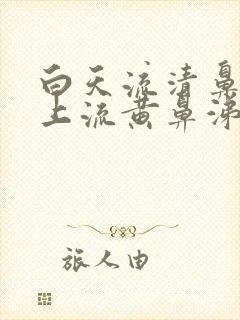 白天流清鼻
上流黄鼻涕
旅人由